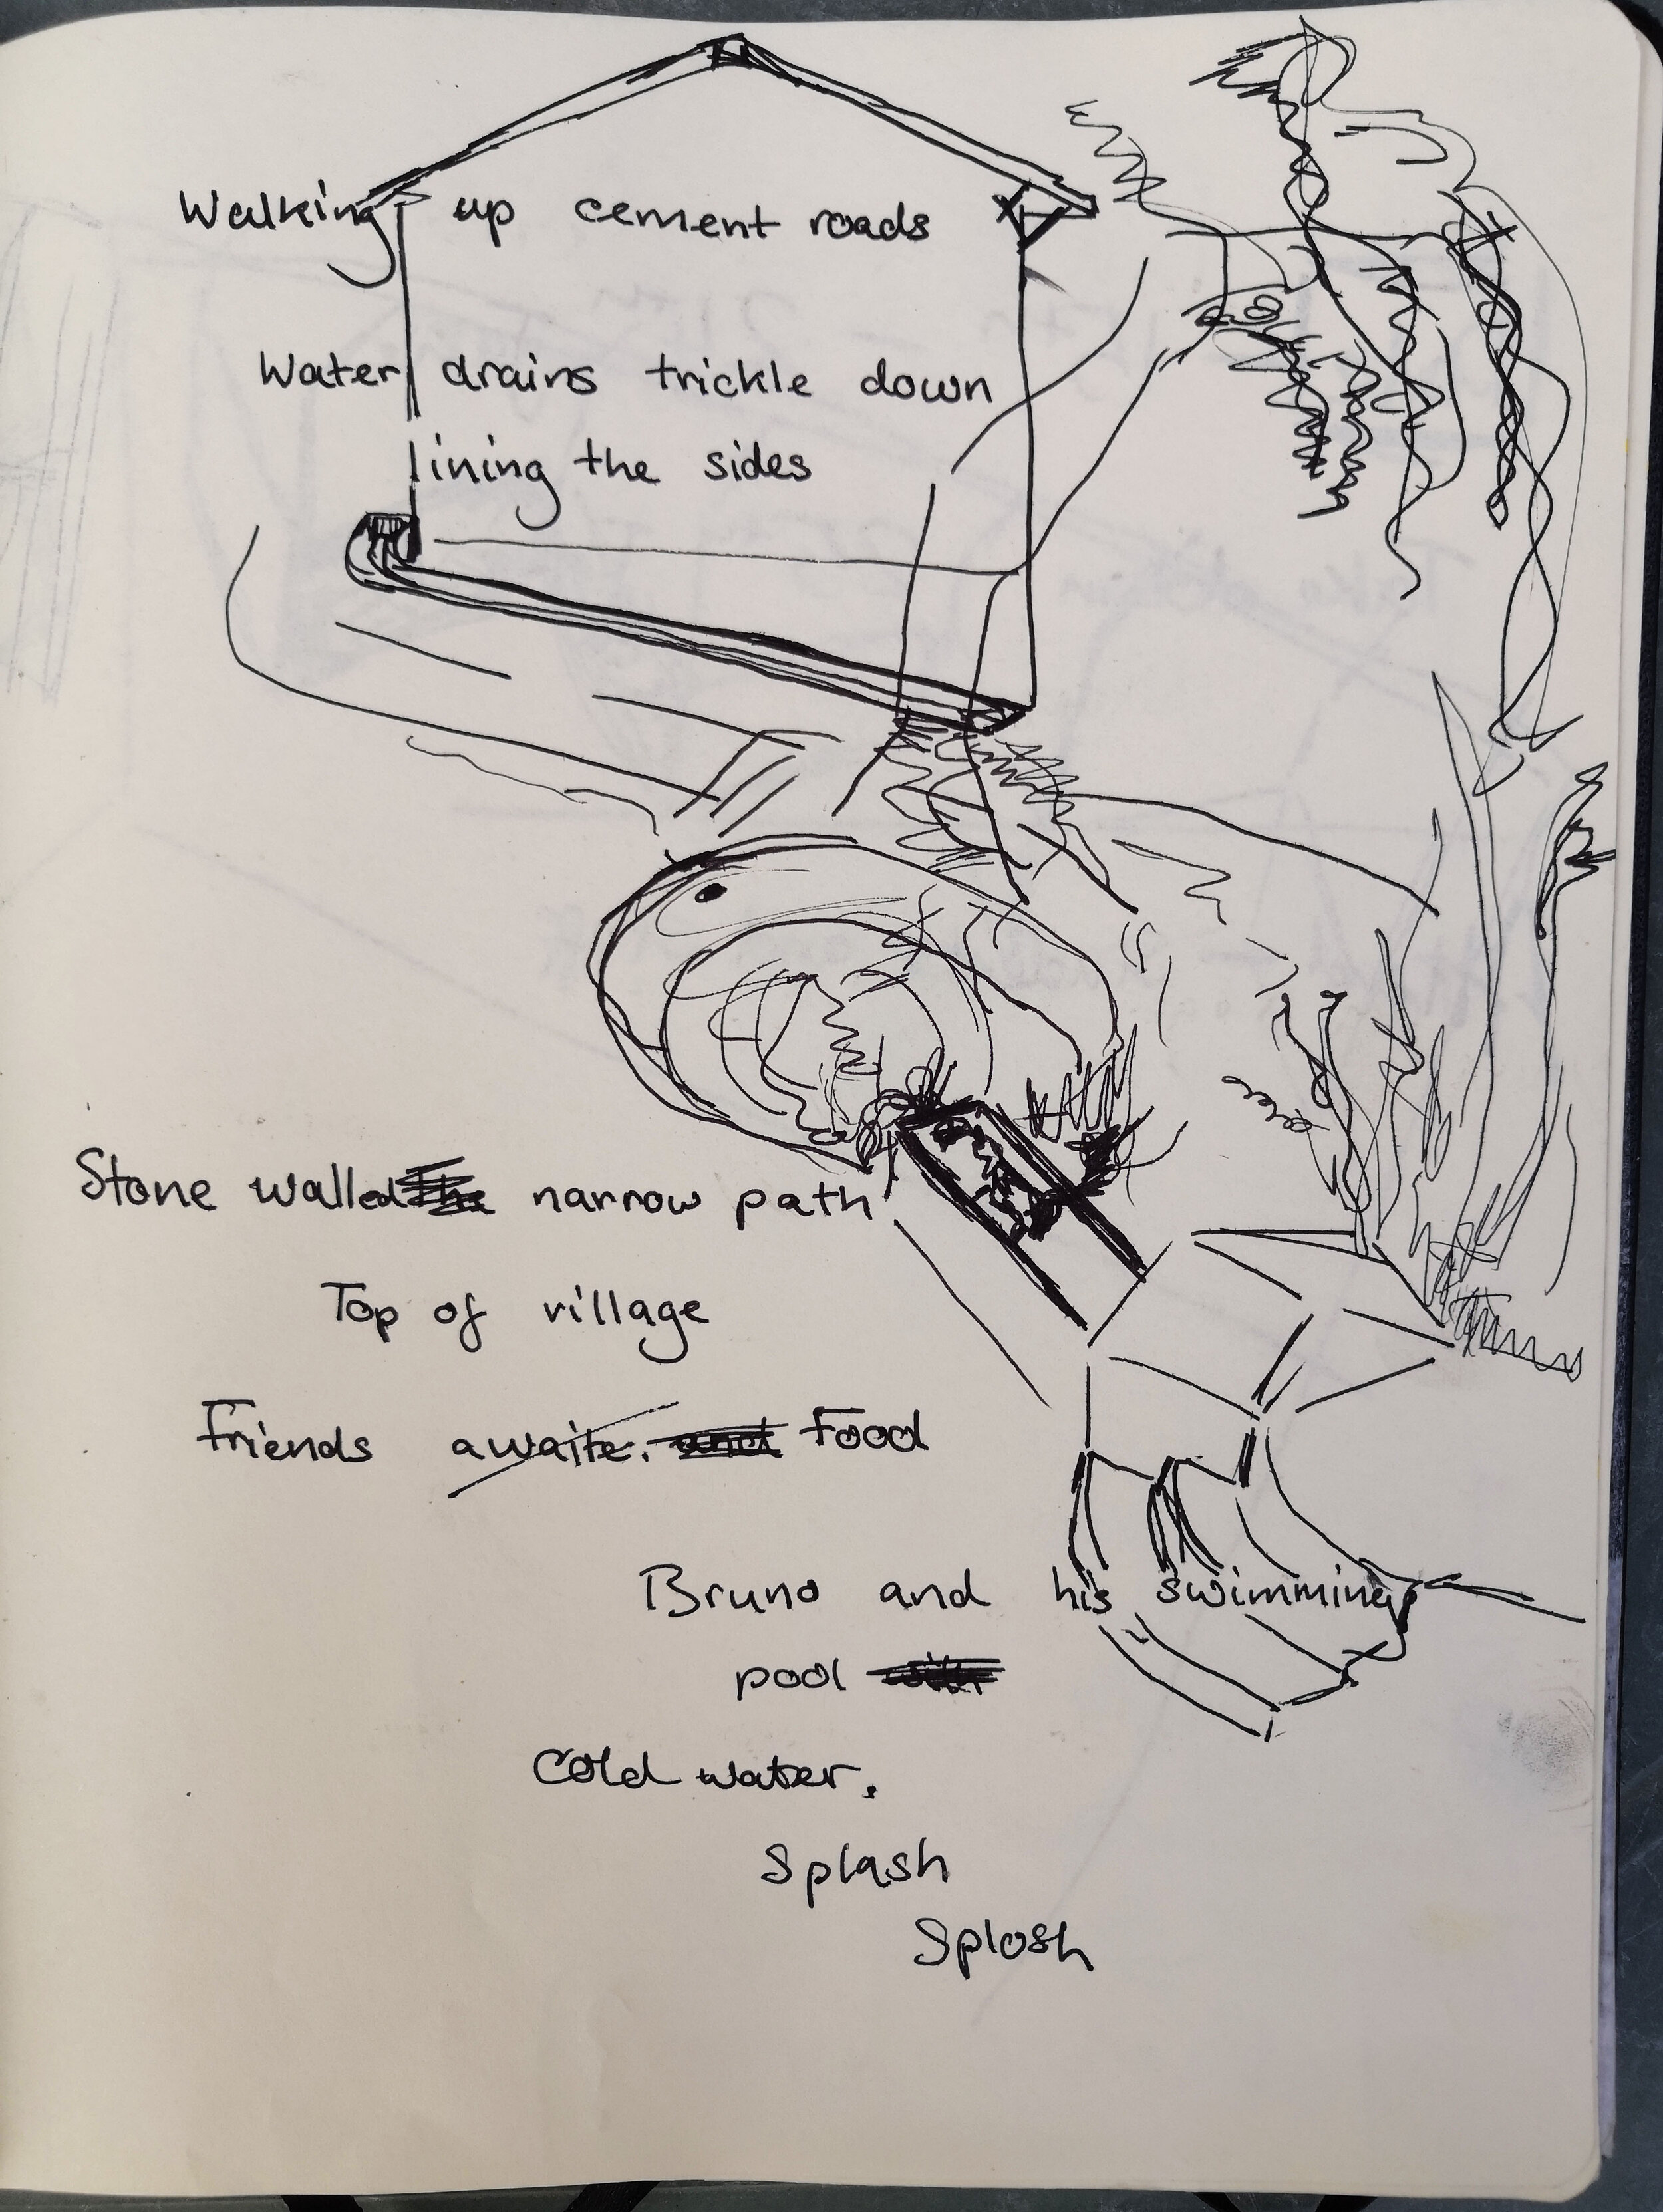 Walking up cement roads
Water drains trickle down
lining the sides
Stone walled narrow path
Top of village
Friends awaite. and Food
Bruno and his swimming
pool
Cold water.
Splash
Splosh